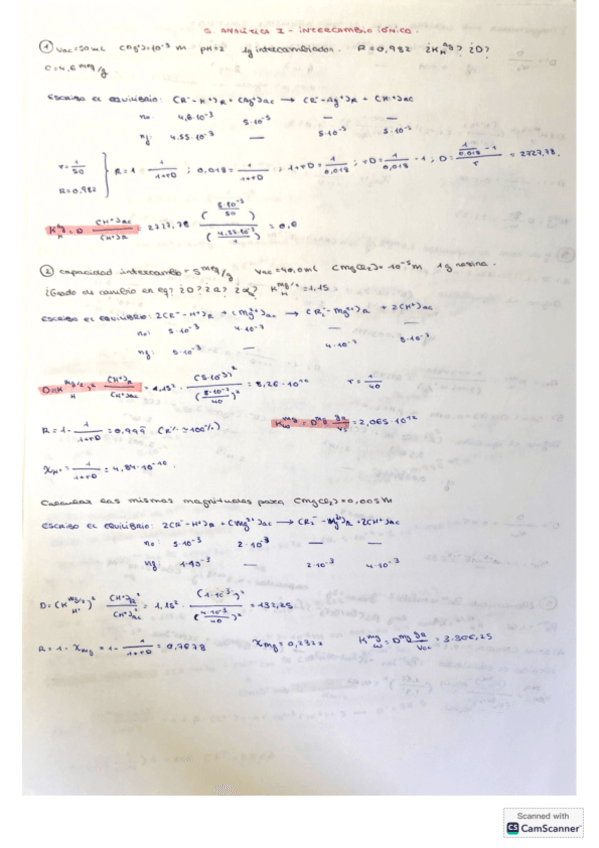 Q. ANALÍTICA I - INTERCAMBIO IÓNICO.
① Vac=50mL C(Ag⁺)=10⁻³ M pH=2 1g intercambiador. R=0,982 ¿K_H^Ag? ¿D?
C=4,6 meq/g
Escribo el equilibrio: (R⁻-H⁺)R + (Ag⁺)ac → (R⁻-Ag⁺)R + (H⁺)ac
no: 4,6·10⁻³ 5·10⁻⁵ — —
nf: 4.55·10⁻³ — 5·10⁻⁵ 5·10⁻⁵
r=1/50
R=0,982
R=1-1/(1+rD); 0,018=1/(1+rD); 1+rD=1/0,018; rD=1/0,018-1; D=(1/0,018-1)/r=2727,78.
K_H^Ag=D (H⁺)ac/(H⁺)R = 2727,78 (5·10⁻⁵/50)/(4,55·10⁻³/1)=0,6
② capacidad intercambio=5 meq/g Vac=40,0mL C(MgCl₂)=10⁻⁵M 1g resina.
¿Grado de cambio en eq? ¿D? ¿R? ¿α? K_H^Mg/2=1,15
Escribo el equilibrio: 2(R⁻-H⁺)R + (Mg²⁺)ac → (R₂⁻-Mg²⁺)R + 2(H⁺)ac
no: 5·10⁻³ 4·10⁻³ — —
nf: 5·10⁻³ — 4·10⁻³ 8·10⁻³
D=(K_H^Mg/2)² (H⁺)R/(H⁺)ac = 1,15² · (5·10⁻³)²/(8·10⁻³/40)²=8,26·10¹⁰ r=1/40
R=1-1/(1+rD)=0,999 (R% ≃100%) K_ω^Mg=D^Mg gR/Vs=2,065·10¹²
X_H⁺=1/(1+rD)=4,84·10⁻¹⁰.
Calcular las mismas magnitudes para C(MgCl₂)=0,005M
Escribo el equilibrio: 2(R⁻-H⁺)R + (Mg²⁺)ac → (R₂⁻-Mg²⁺)R + 2(H⁺)ac
no: 5·10⁻³ 2·10⁻³ — —
nf: 1·10⁻³ — 2·10⁻³ 4·10⁻³
D=(K_H⁺^Mg/2)² (H⁺)R²/(H⁺)ac² = 1,15² · (1·10⁻³)²/(4·10⁻³/40)²=132,25
R=1-X_Mg=1-1/(1+rD)=0,7678 X_Mg=0,2322 K_ω^Mg=D^Mg gR/Vac=3.306,25
Scanned with
CS CamScanner